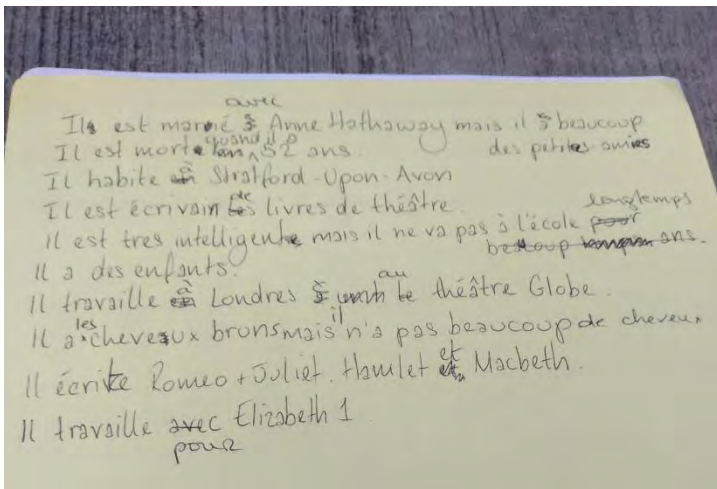 avec
Ils est marié à Anne Hathaway mais il a beaucoup
Il est morte quand il a 52 ans. des petites amies
Il habite à Stratford-Upon-Avon
Il est écrivain de livres de théâtre.
Il est tres intelligente mais il ne va pas à l'école pour longtemps
beaucoup ans.
Il a des enfants.
Il travaille à Londres au théâtre Globe.
Il a les cheveux bruns mais il n'a pas beaucoup de cheveux
Il écrite Romeo + Juliet. Hamlet et Macbeth.
Il travaille avec Elizabeth 1
pour